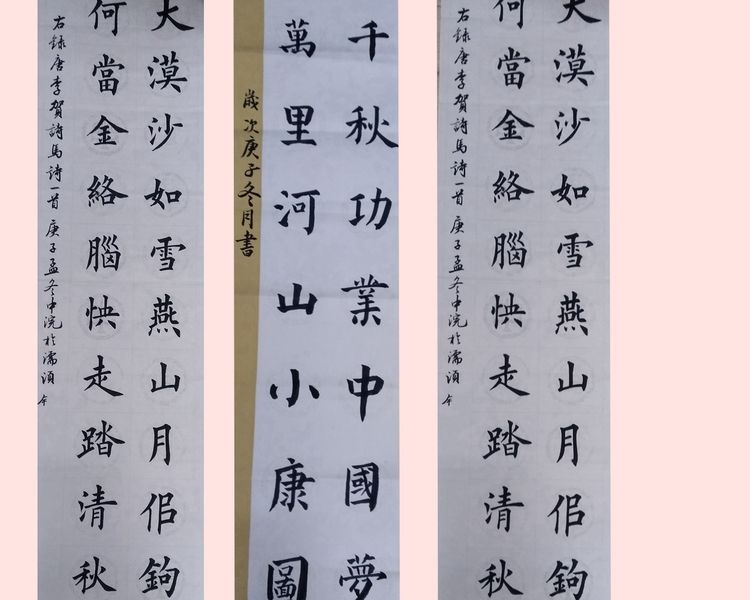 大漠沙如雪燕山月佀鉤
何當金絡腦快走踏清秋
右録唐李賀詩馬詩一首 庚子孟冬中浣於濡須
千秋功業中國夢
萬里河山小康圖
歲次庚子冬月書
大漠沙如雪燕山月佀鉤
何當金絡腦快走踏清秋
右録唐李賀詩馬詩一首 庚子孟冬中浣於濡須